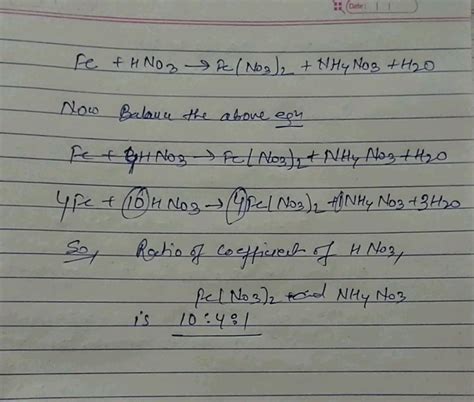 Date
Fe + HNO3 → Fe(NO3)2 + NH4NO3 + H2O
Now Balance the above eqn
Fe + HNO3 → Fe(NO3)2 + NH4NO3 + H2O
4Fe + 10HNO3 → 4Fe(NO3)2 + 1NH4NO3 + 3H2O
So, Ratio of coefficient of HNO3,
Fe(NO3)2 and NH4NO3
is 10:4:1